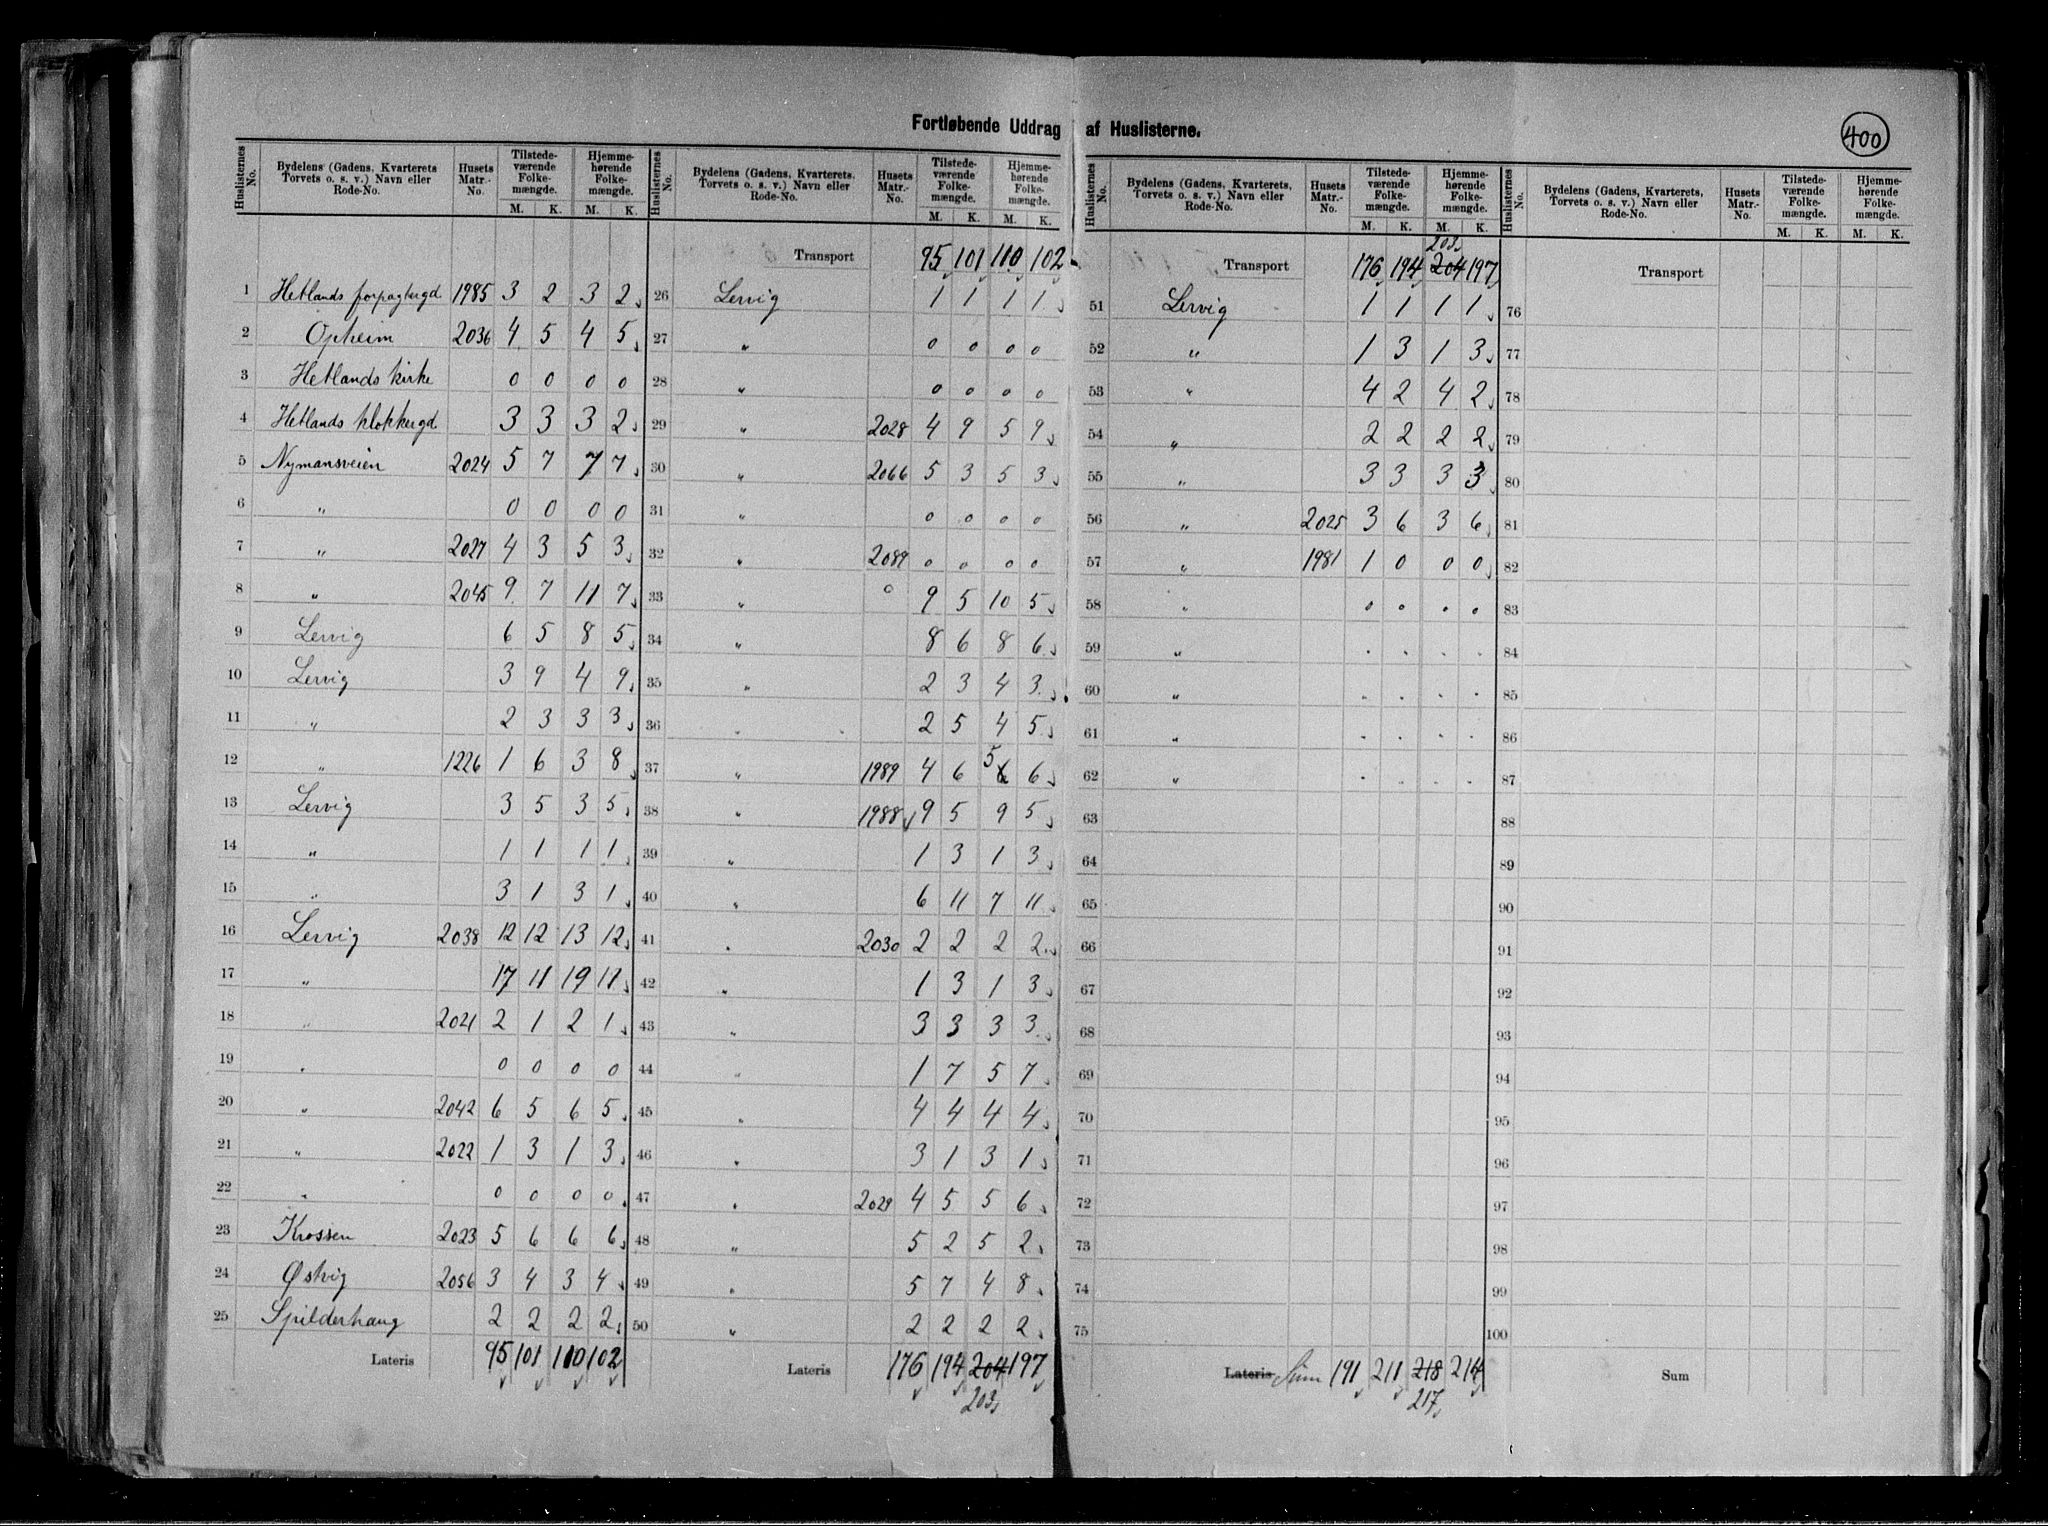 Fortløbende Uddrag af Huslisterne.
400
Huslisternes No. | Bydelens (Gadens, Kvarterets Torvets o. s. v.) Navn eller Rode-No. | Husets Matr.-No. | Tilstede-værende Folke-mængde. M. K. | Hjemme-hørende Folke-mængde. M. K.
1 Hetlands forpagtergd 1985 3 2 3 2
2 Opheim 2036 4 5 4 5
3 Hetlands kirke 0 0 0 0
4 Hetlands klokkergd 3 3 3 2
5 Nymansveien 2024 5 7 7 7
6 " 0 0 0 0
7 " 2027 4 3 5 3
8 " 2045 9 7 11 7
9 Lervig 6 5 8 5
10 Lervig 3 9 4 9
11 " 2 3 3 3
12 " 1226 1 6 3 8
13 Lervig 3 5 3 5
14 " 1 1 1 1
15 " 3 1 3 1
16 Lervig 2038 12 12 13 12
17 " 17 11 19 11
18 " 2021 2 1 2 1
19 " 0 0 0 0
20 " 2042 6 5 6 5
21 " 2022 1 3 1 3
22 " 0 0 0 0
23 Krossen 2023 5 6 6 6
24 Østvig 2056 3 4 3 4
25 Spilderhaug 2 2 2 2
Lateris 95 101 110 102
Huslisternes No. | Bydelens (Gadens, Kvarterets, Torvets o. s. v.) Navn eller Rode-No. | Husets Matr.-No. | Tilstede-værende Folke-mængde. M. K. | Hjemme-hørende Folke-mængde. M. K.
Transport 95 101 110 102
26 Lervig 1 1 1 1
27 " 0 0 0 0
28 " 0 0 0 0
29 " 2028 4 9 5 9
30 " 2066 5 3 5 3
31 " 0 0 0 0
32 " 2089 0 0 0 0
33 " 0 9 5 10 5
34 " 8 6 8 6
35 " 2 3 4 3
36 " 2 5 4 5
37 " 1989 4 6 5 6 6
38 " 1988 9 5 9 5
39 " 1 3 1 3
40 " 6 11 7 11
41 " 2030 2 2 2 2
42 " 1 3 1 3
43 " 3 3 3 3
44 " 1 7 5 7
45 " 4 4 4 4
46 " 3 1 3 1
47 " 2029 4 5 5 6
48 " 5 2 5 2
49 " 5 7 4 8
50 " 2 2 2 2
Lateris 176 194 204 197
203
Huslisternes No. | Bydelens (Gadens, Kvarterets, Torvets o. s. v.) Navn eller Rode-No. | Husets Matr.-No. | Tilstede-værende Folke-mængde. M. K. | Hjemme-hørende Folke-mængde. M. K.
203
Transport 176 194 204 197
51 Lervig 1 1 1 1
52 " 1 3 1 3
53 " 4 2 4 2
54 " 2 2 2 2
55 " 3 3 3 3
56 " 2025 3 6 3 6
57 " 1981 1 0 0 0
58 " 0 0 0 0
59 " . . . .
60 " . . . .
61 " . . . .
62 " . . . .
63
64
65
66
67
68
69
70
71
72
73
74
75
Lateris Sum 191 211 218 214
217
Huslisternes No. | Bydelens (Gadens, Kvarterets, Torvets o. s. v.) Navn eller Rode-No. | Husets Matr.-No. | Tilstede-værende Folke-mængde. M. K. | Hjemme-hørende Folke-mængde. M. K.
Transport
76
77
78
79
80
81
82
83
84
85
86
87
88
89
90
91
92
93
94
95
96
97
98
99
100
Sum